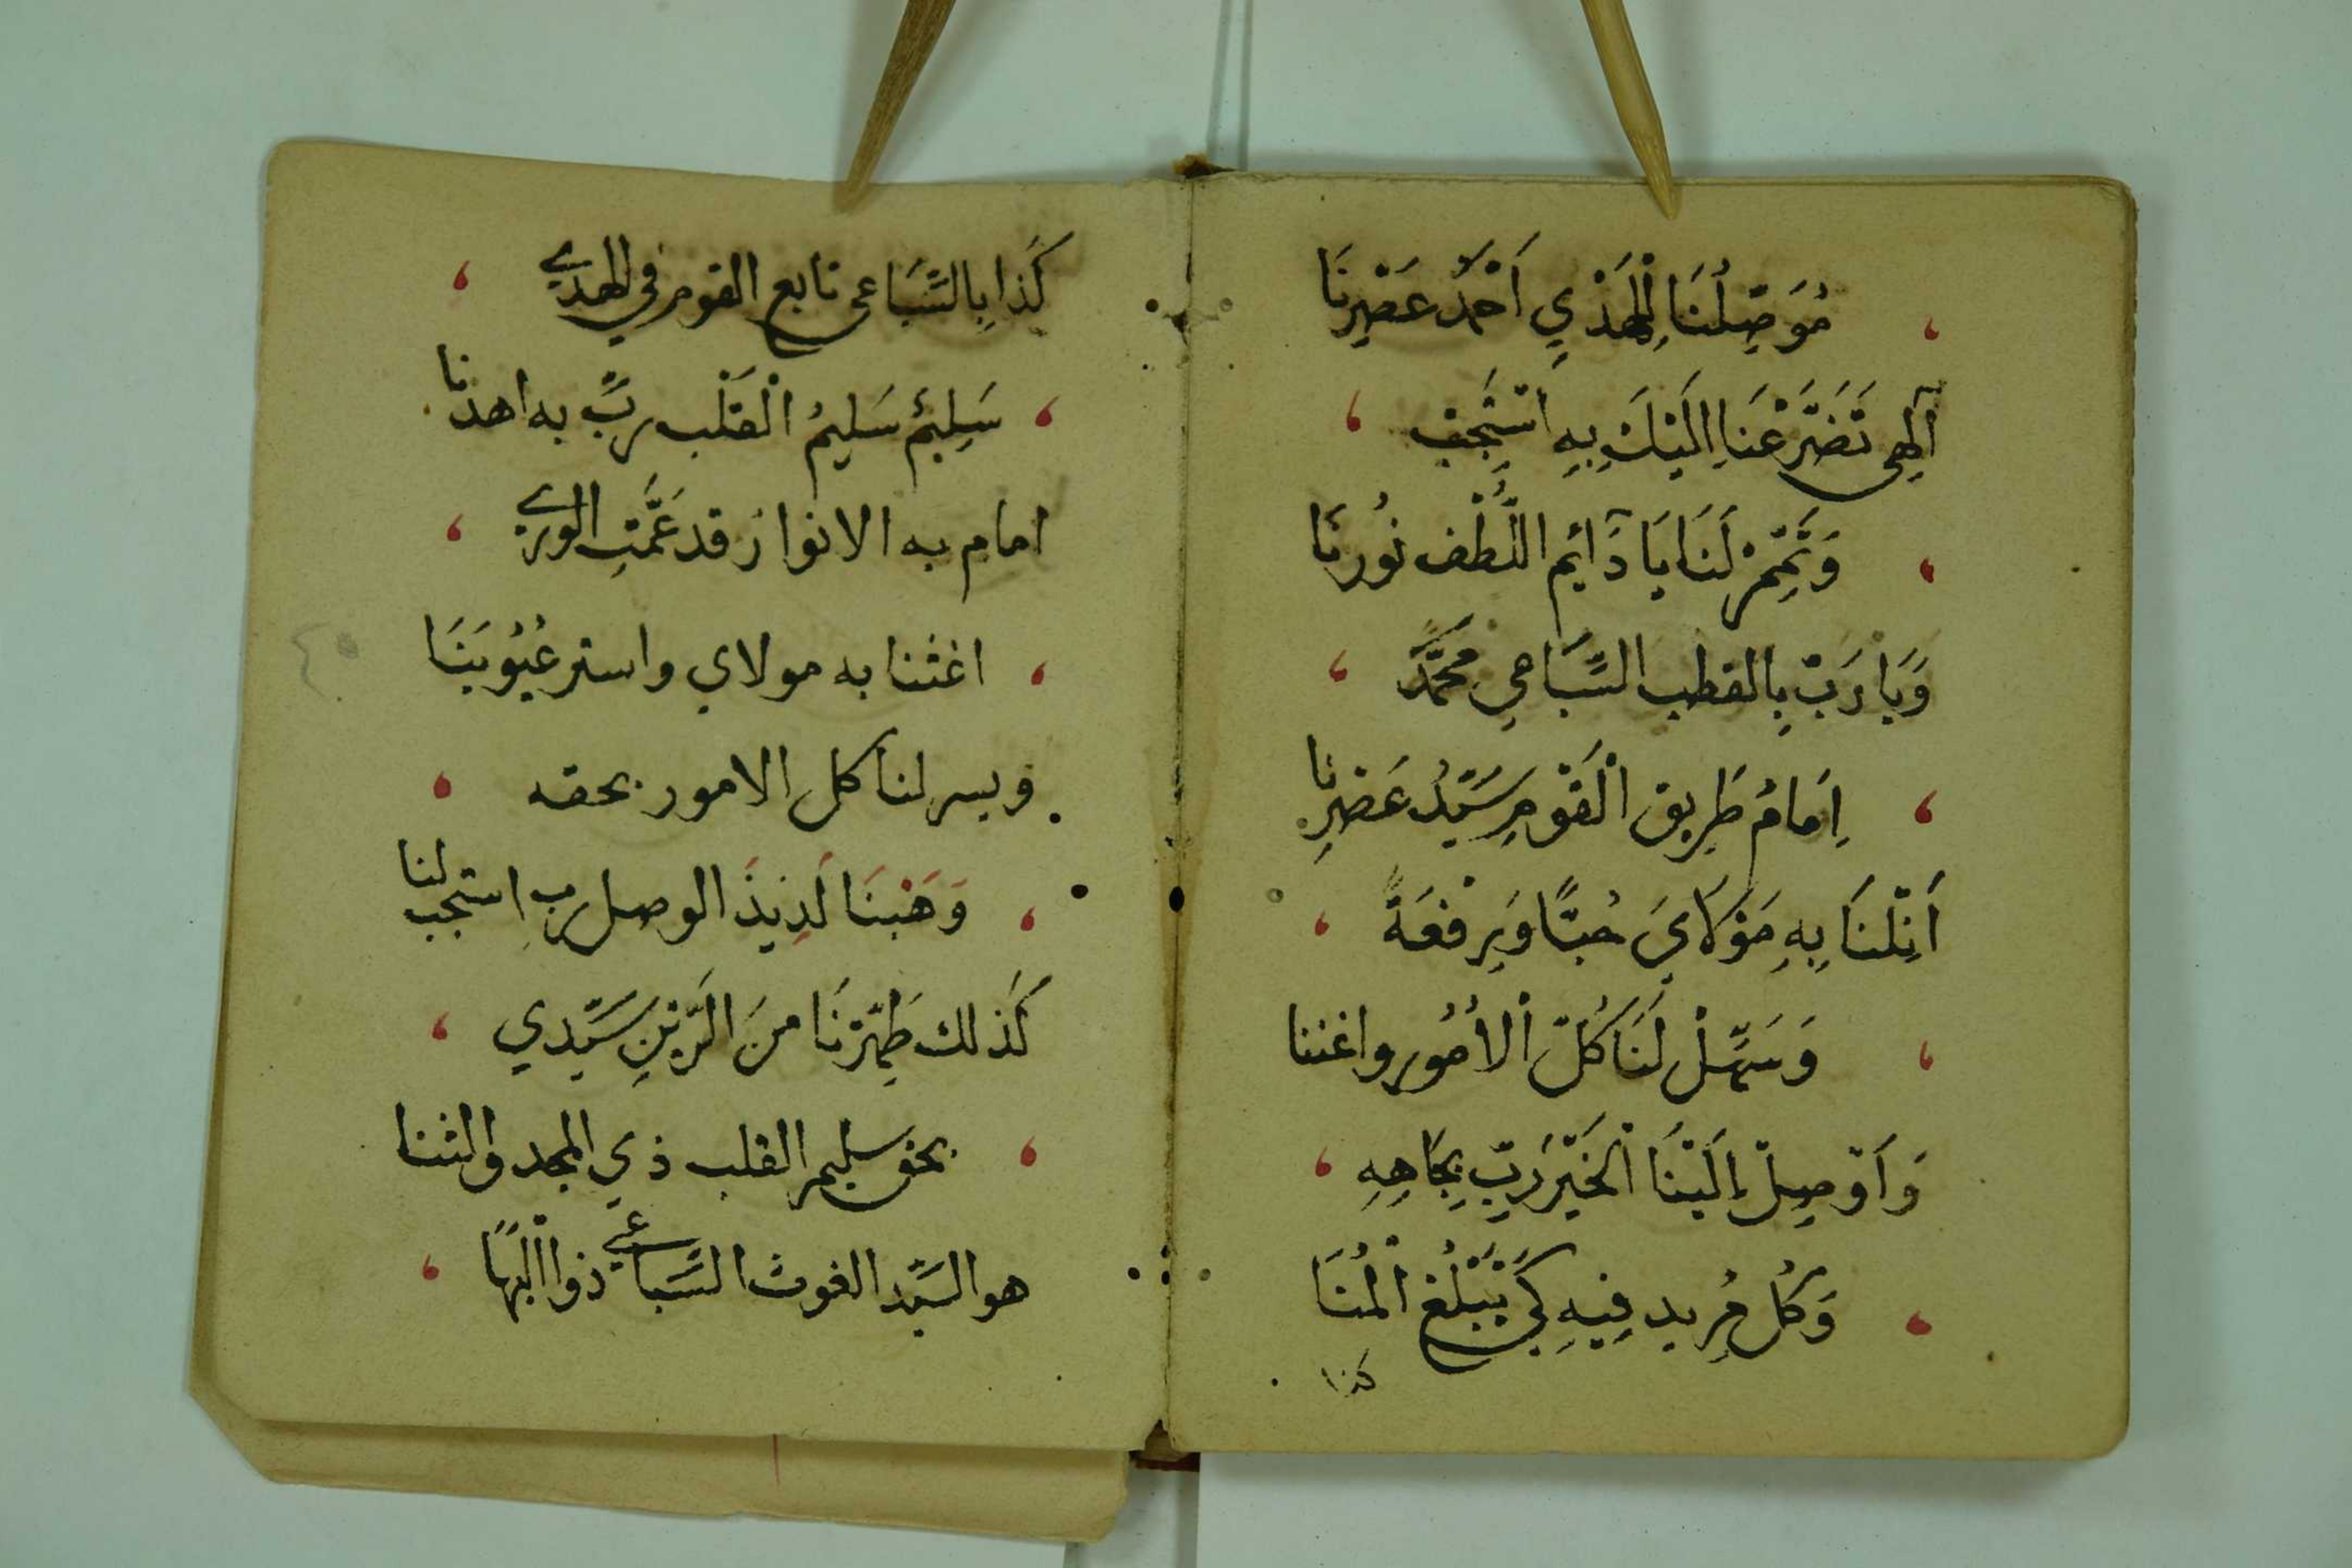 مُوَصِلُنَا لِلْهَدْيِ أَحْمَدُ عَصْرِنَا
آلهِي تَضَرَّعْنَا اِلَيْكَ بِهِ اسْتَجِبْ
وَتَمِّمْ لَنَا يَا دَآئِم اللُّطْف نُورنَا
وَيَا رَبّ بِالقطب السِّبَاعِي مُحَمَّد
اِمَامُ طَرِيق الْقَوْمِ سَيِّدُ عَصْرِنَا
اَنِلْنَا بِهِ مَوْلَايَ حُبًّا وَرِفْعَةً
وَسَهِّلْ لَنَا كُلّ الْأُمُور واغننا
وَاَوْصِلْ اِلَيْنَا الْخَيْرَ رَبِّ بِجَاهِهِ
وَكُل مُرِيد فِيهِ كَيْ يَبْلُغَ الْمُنَا
كذا
كَذَا بِالسِّبَاعى تابع القوم في الهدي
سَلِيمٌ سَلِيمُ الْقَلْب ربِّ به اهدنا
امام به الانوار قد عَمَّتِ الوري
اغثنا به مولاي واستر عُيُوبَنَا
ويسر لنا كل الامور بحقه
وَهَبْنَا لَذِيذَ الوصل ربِ استجب لنا
كَذلك طَهِّرْنَا منَ الرَّيْنِ سَيِّدِي
بحق سليم القلب ذي المجد والثنا
هو السَيِّد الغوث السِّبَاعي ذوا الْبَهَا